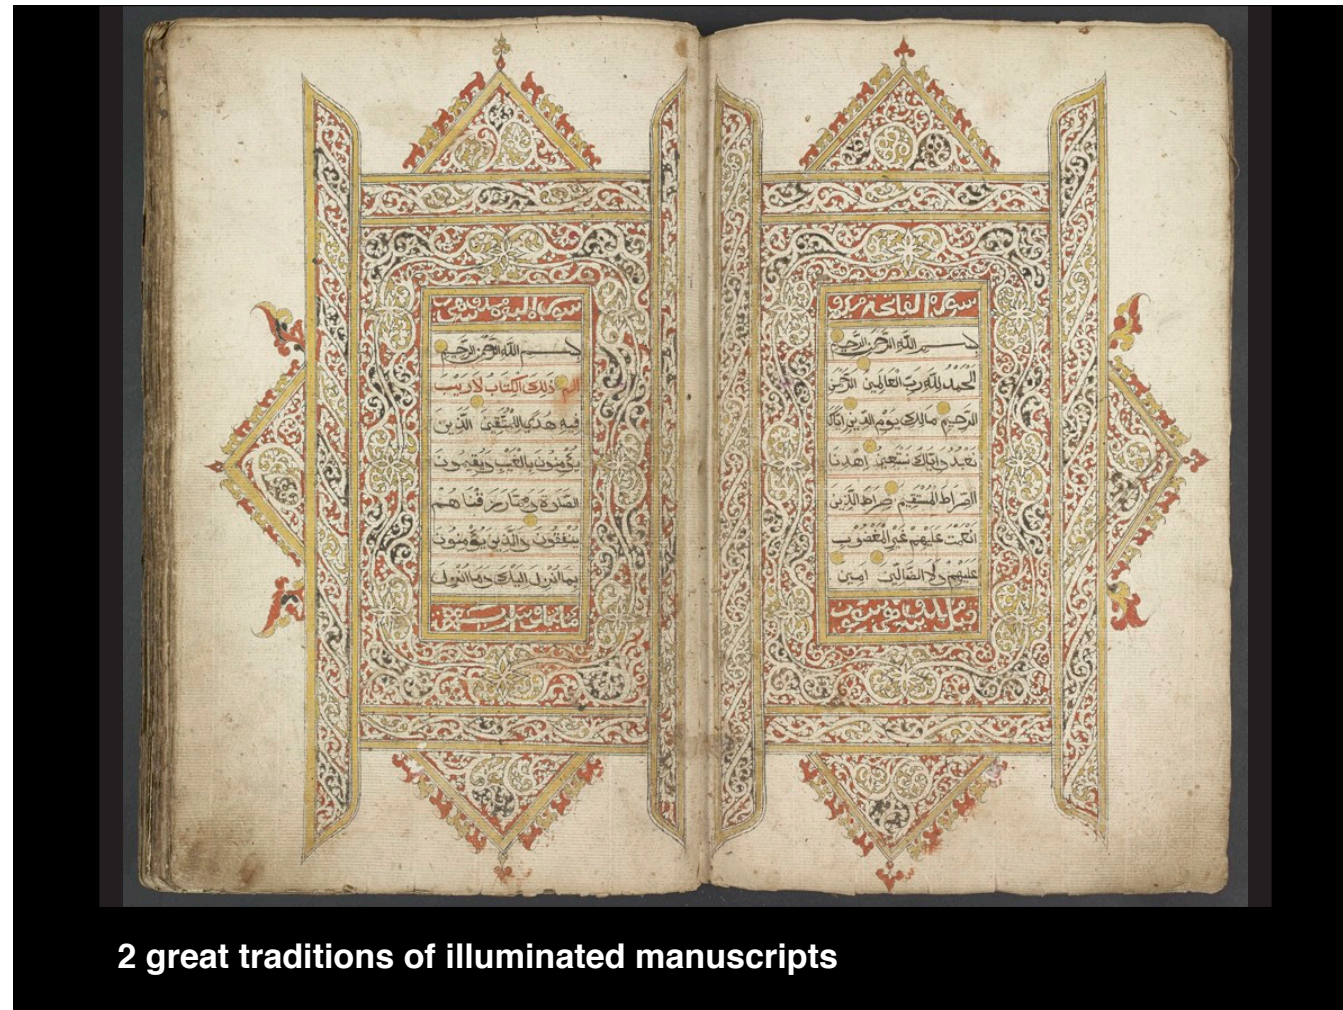 سورة الفاتحة
بسم الله الرحمن الرحيم
الحمد لله رب العالمين الرحمن
الرحيم مالك يوم الدين اياك
نعبد واياك نستعين اهدنا
الصراط المستقيم صراط الذين
انعمت عليهم غير المغضوب
عليهم ولا الضالين امين
سورة البقرة
بسم الله الرحمن الرحيم
الم ذلك الكتاب لا ريب
فيه هدى للمتقين الذين
يؤمنون بالغيب ويقيمون
الصلاة ومما رزقناهم
ينفقون والذين يؤمنون
بما انزل اليك وما انزل
2 great traditions of illuminated manuscripts